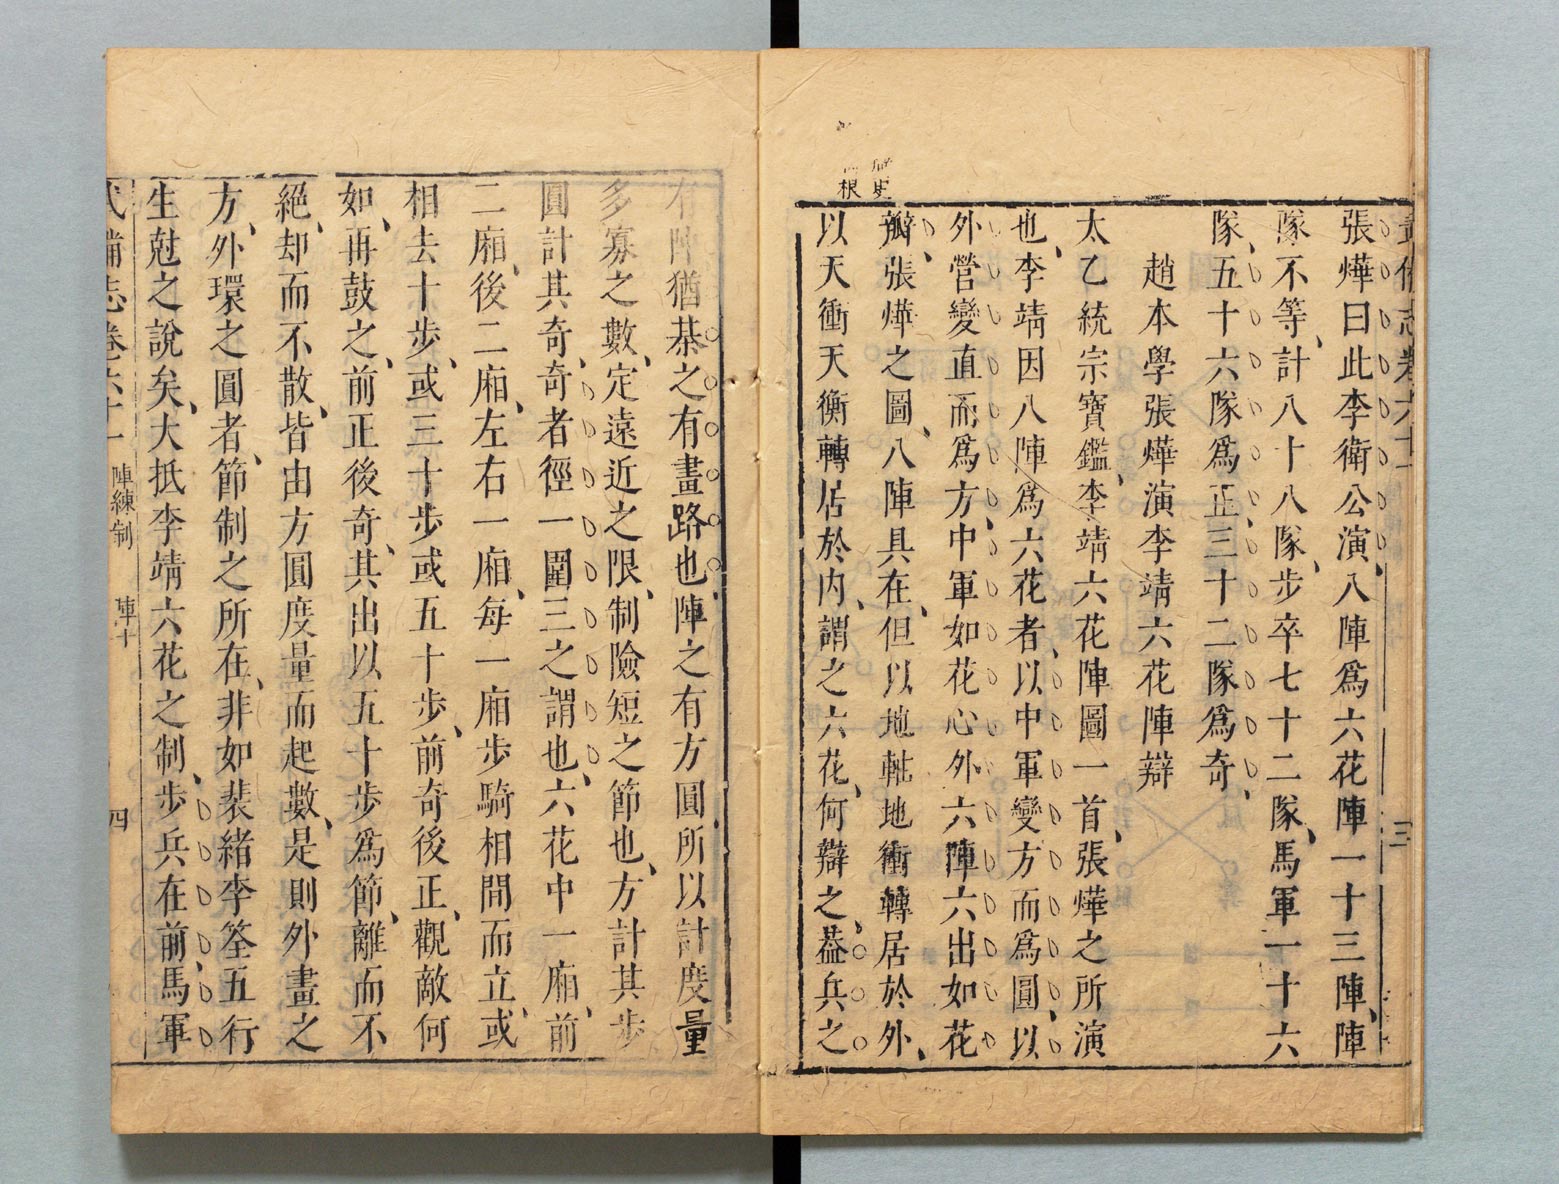 武備志卷六十一
三
張燁曰此李衛公演八陣爲六花陣一十三陣陣
隊不等計八十八隊步卒七十二隊馬軍一十六
隊五十六隊爲正三十二隊爲奇
趙本學張燁演李靖六花陣辯
太乙統宗寶鑑李靖六花陣圖一首張燁之所演
也李靖因八陣爲六花者以中軍變方而爲圓以
外營變直而爲方中軍如花心外六陣六出如花
瓣張燁之圖八陣具在但以地軸地衝轉居於外
以天衝天衡轉居於內謂之六花何辯之葢兵之
有陣猶棊之有畫路也陣之有方圓所以計度量
多寡之數定遠近之限制險短之節也方計其步
圓計其奇奇者徑一圍三之謂也六花中一廂前
二廂後二廂左右一廂每一廂步騎相間而立或
相去十步或三十步或五十步前奇後正觀敵何
如再鼓之前正後奇其出以五十步爲節離而不
絕却而不散皆由方圓度量而起數是則外畫之
方外環之圓者節制之所在非如裴緒李筌五行
生尅之說矣大抵李靖六花之制步兵在前馬軍
武備志卷六十一 陣練制 陣十 四